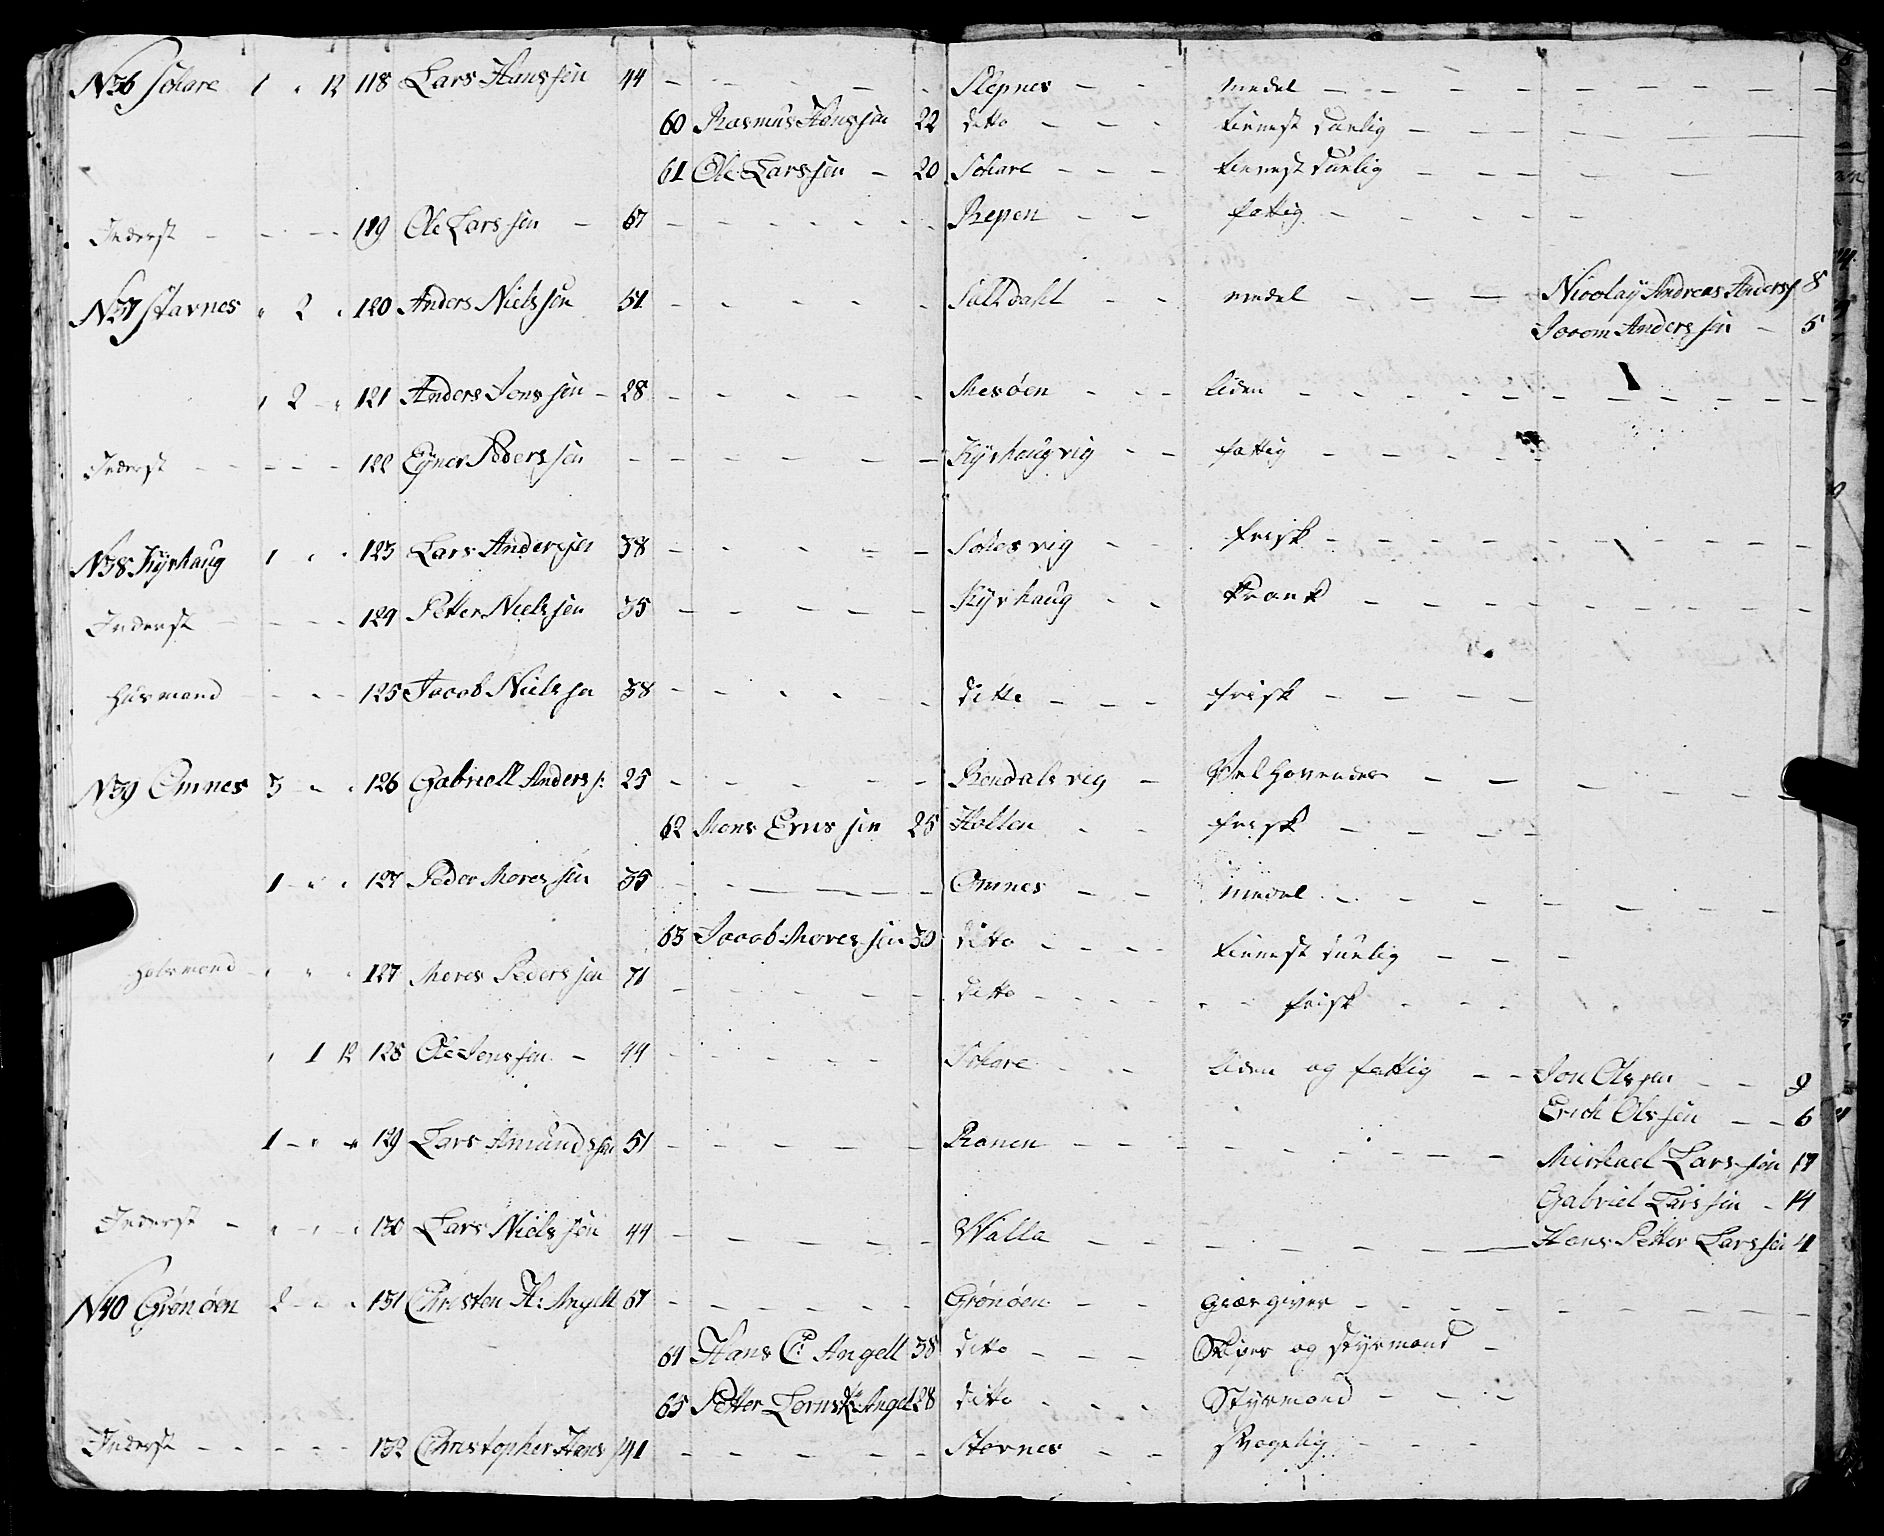 N36 Sohare 1 " 12 118 Lars Hanssøn 44 Slepnes medel
60 Rasmus Hanssøn 22 ditto tienest dunlig
61 Ole Larssøn 20 Sohare tienest dunlig
Inderst 119 Ole Larssøn 67 Repen fattig
N37 Stavnes " 2 " 120 Anders Nielssøn 51 Saltdahl medel Nicolaÿ Andreas Anderss 8
Jocom Anderssøn 5
" 2 " 121 Anders Jonssøn 28 Mesøen liden 1
Inderst 122 Eÿner Pederssøn Kÿrhaugvig fattig
N38 Kÿrhaug 1 " " 123 Lars Anderssen 38 Sohesvig frisk
Inderst 124 Petter Nielssøn 35 Kÿrhaug Krank
Husmand 125 Jacob Nielssøn 38 ditto frisk
N39 Omnes 3 " " 126 Gabriell Anders s: 25 Rendalsvig Velhavendes
62 Mons Ernssøn 25 Holten frisk
1 " " 127 Peder Moressøn 35 Omnes medel
63 Jacob Moressøn 30 ditto tienest dunlig
Husmand " " " 127 Mores Pederssøn 71 ditto frisk
" 1 12 128 Ole Jenssøn 44 Sohare liden og fattig Jon Olssøn 9
Erich Olssøn 6
1 " " 129 Lars Amundssøn 51 Ranen Mirhael Larssøn 17
Gabriel Larssøn 14
Inderst " " " 130 Lars Nielssøn 44 Walla Hans Petter Larssøn 4
N40 Grønøen 2 " " 131 Christen H: Angell 67 Grønøen giæsgiver
64 Hans C: Angell 38 ditto Skiper og styrmand
65 Petter Lorns Angel 28 ditto Styrmand
Inderst 132 Christopher Hans s 41 Stovnes svagelig